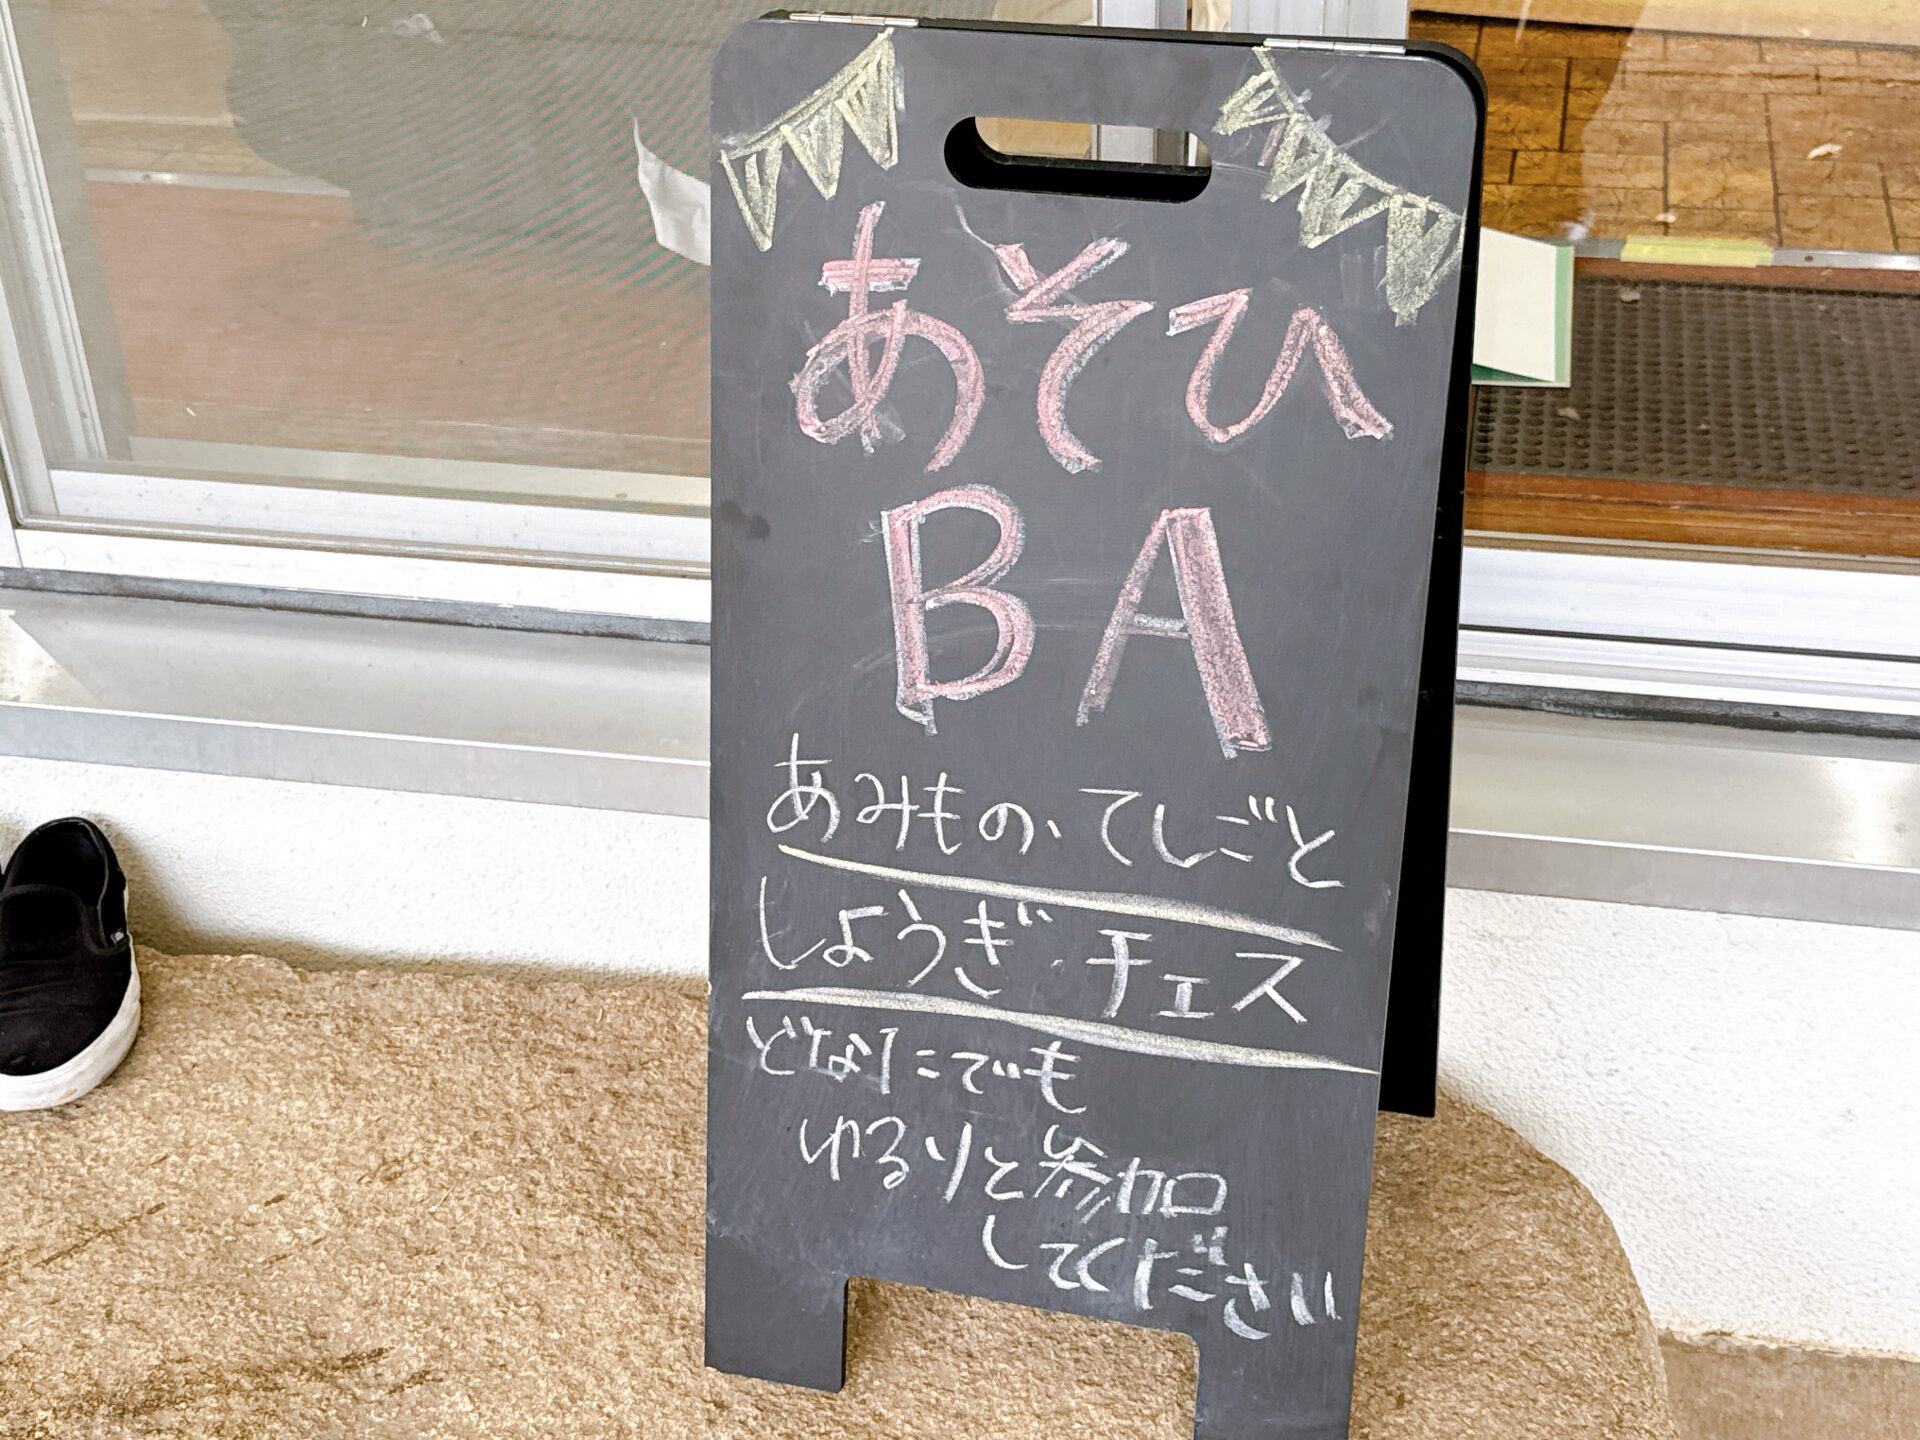 あそひ
BA
あみもの、てしごと
しょうぎ・チェス
どなたでも
ゆるりと参加
してください